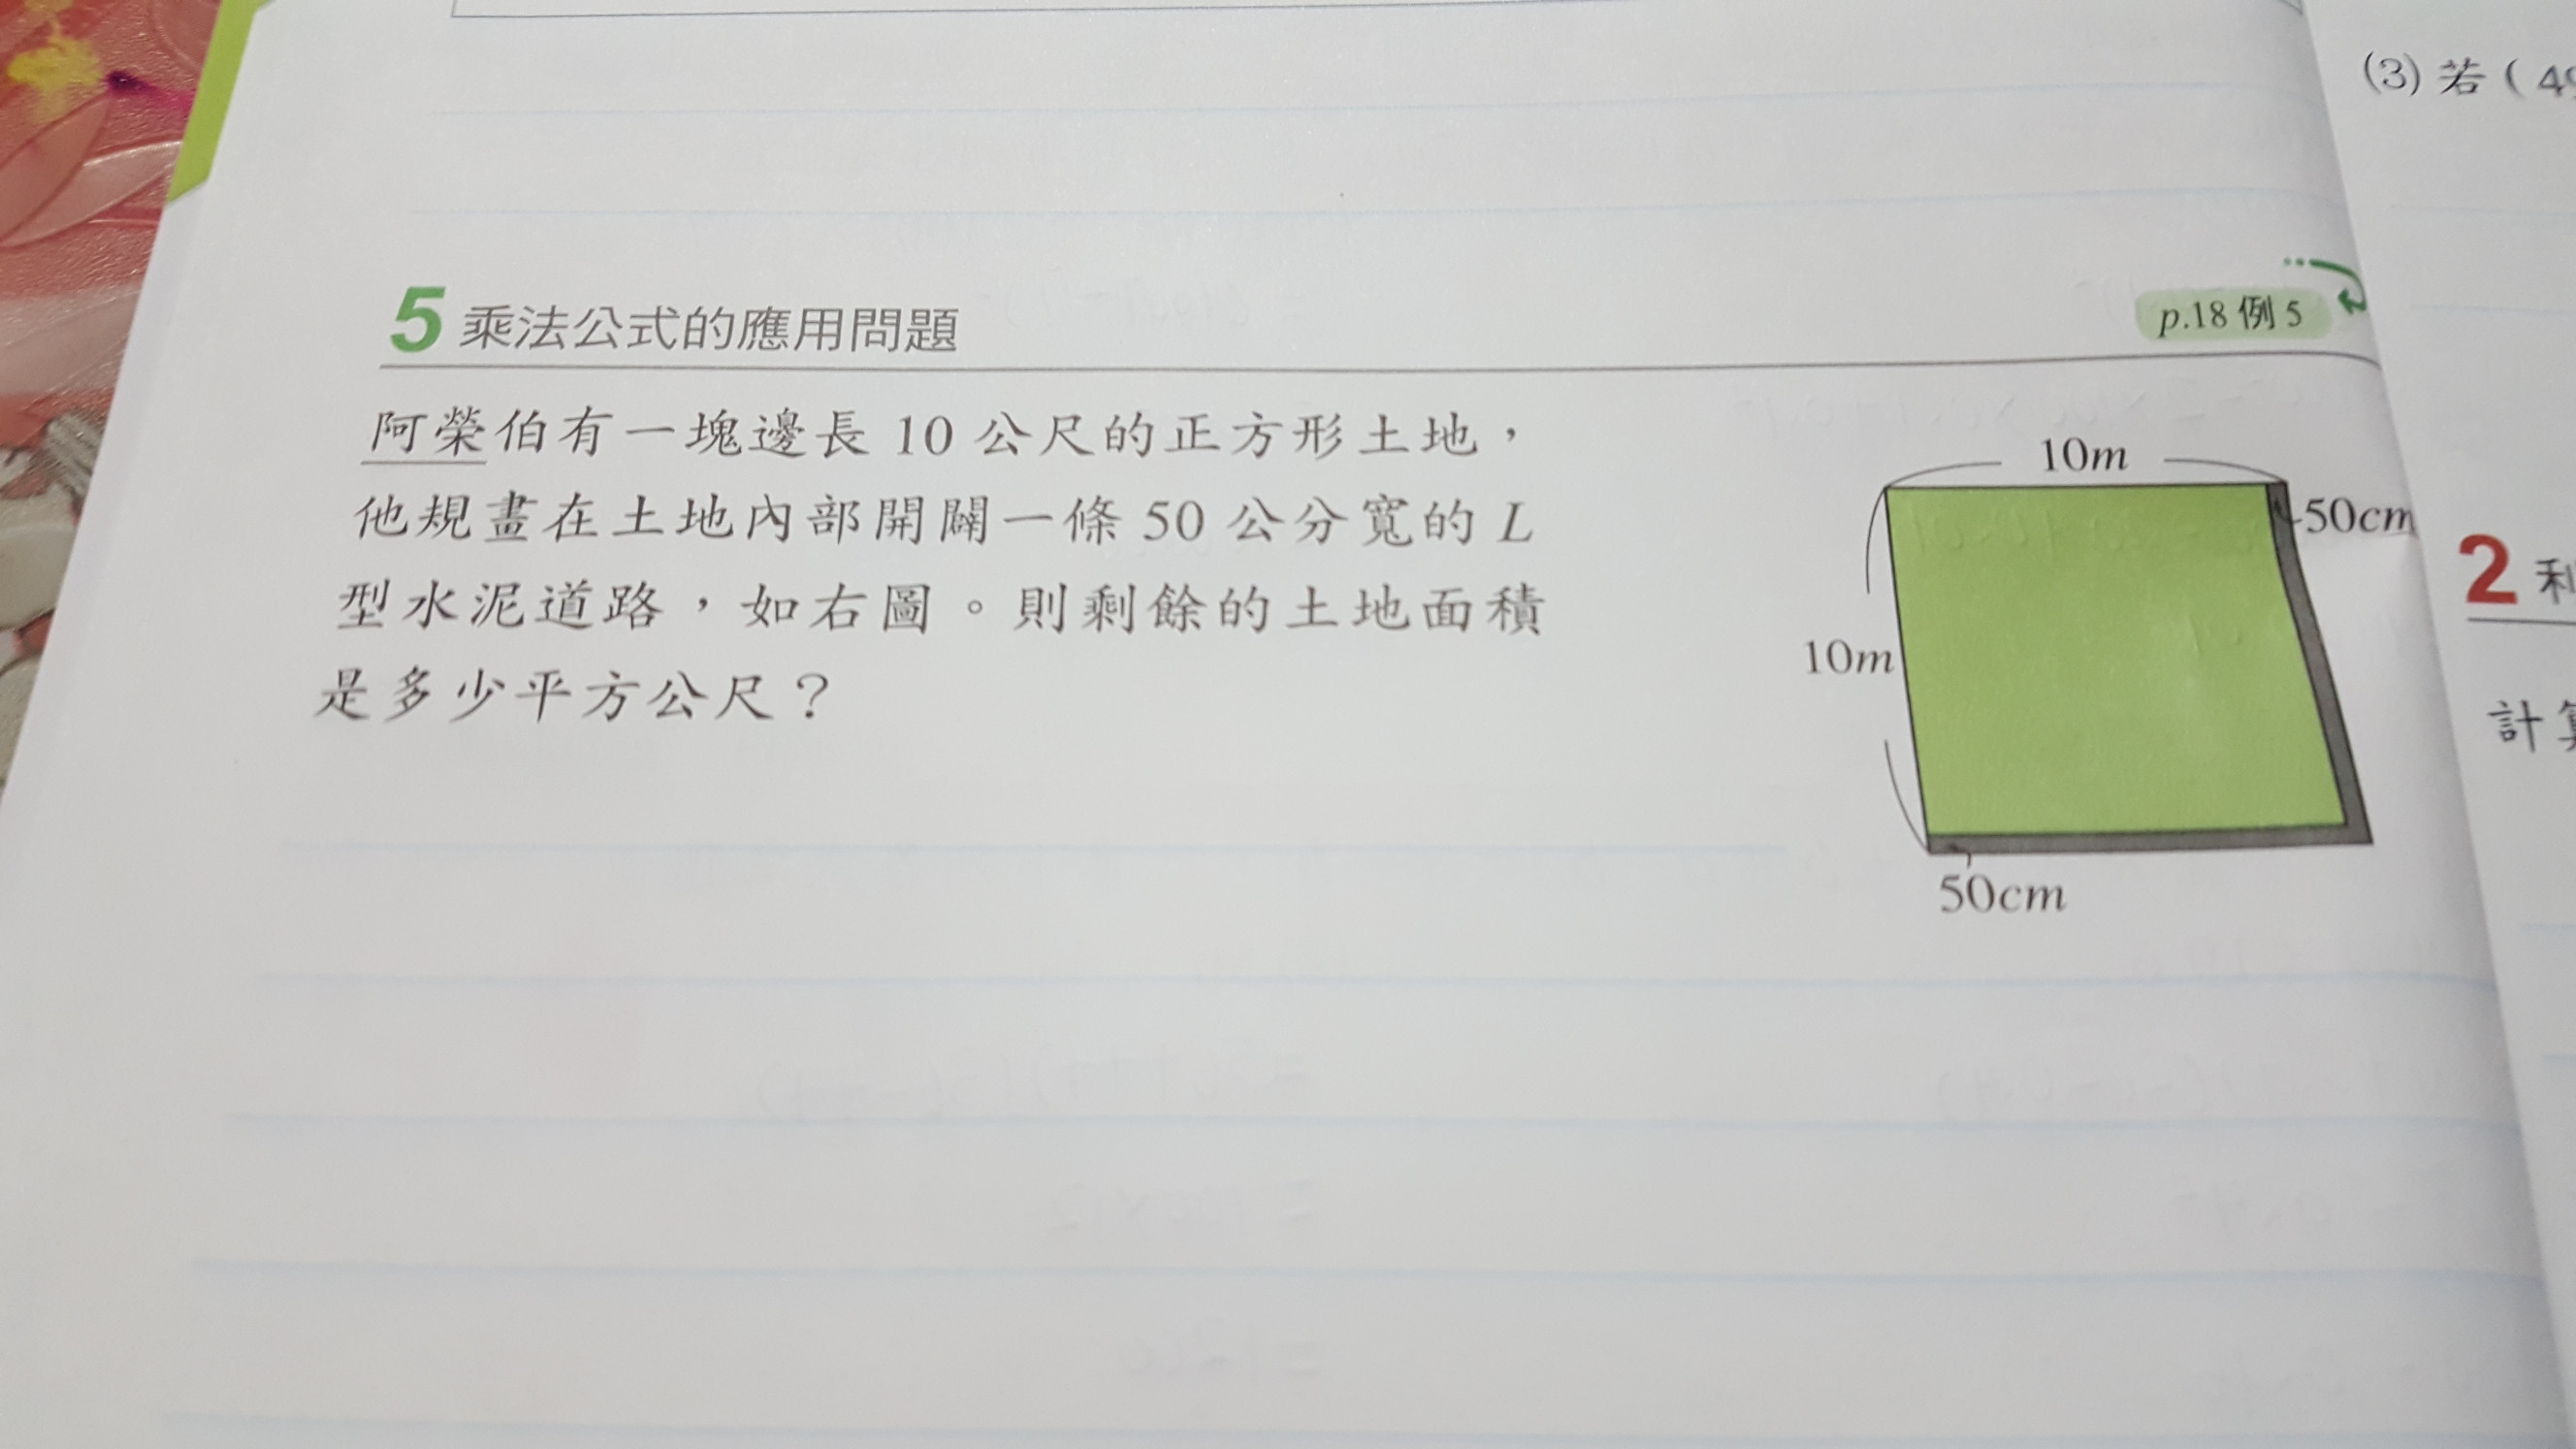 (3) 若 ( 49
5 乘法公式的應用問題
p.18 例 5
阿榮伯有一塊邊長 10 公尺的正方形土地，
他規畫在土地內部開闢一條 50 公分寬的 L
型水泥道路，如右圖。則剩餘的土地面積
是多少平方公尺？
10m
50cm
10m
50cm
2 利
計算